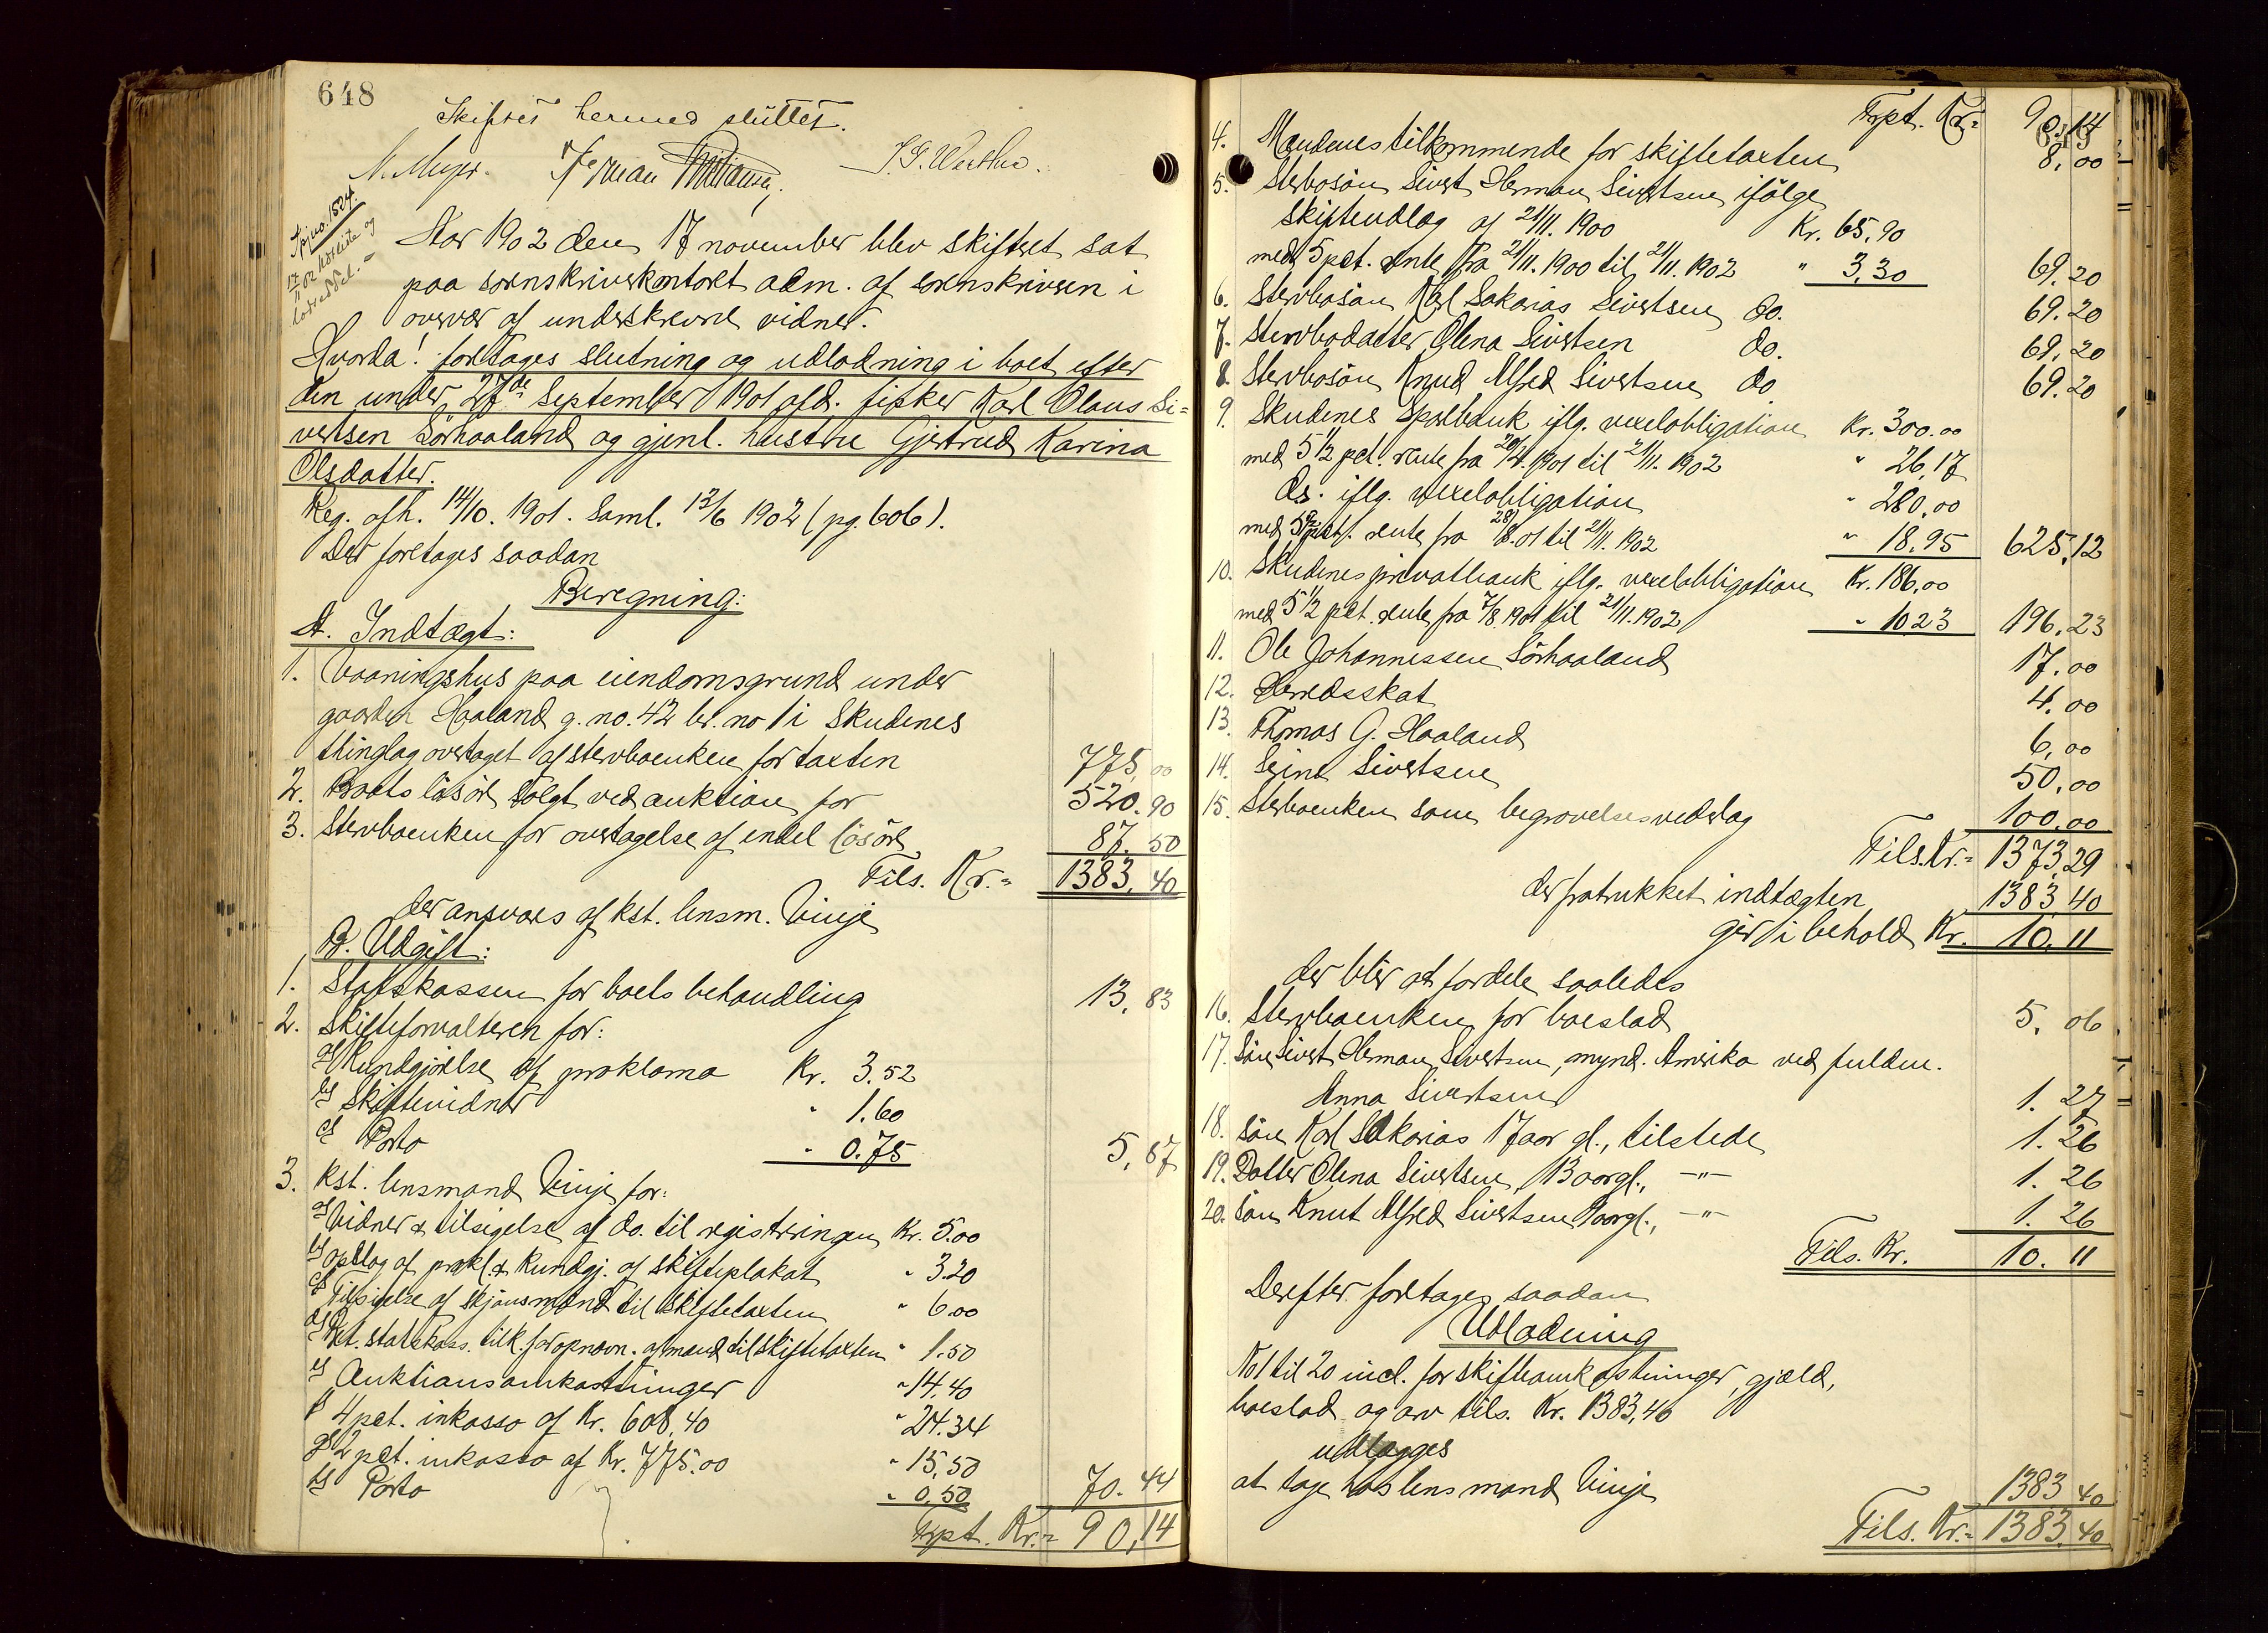 648
Skiftet hermed sluttet.
Aar 1902 den 17 november blev skifteret sat
paa sorenskriverkontoret adm. af sorenskriveren i
overvær af underskrevne vidner.
Hvorda! foretages slutning og udlodning i boet efter
den under 27de September 1901 afd. fisker Karl Olaus Si=
vertsen Sörhaaland og gjenl. hustru Gjertrud Karina
Olsdatter.
Reg. afh. 14/10. 1901. Saml. 13/6 1902 (pg. 606).
Der foretages saadan
Beregning:
A. Indtægt:
1. Vaaningshus paa eiendomsgrund under
gaarden Haaland g. no. 42 br. no 1 i Skudenes
thinglag overtaget af stervboenken for taxten 775,00
2. Boets lösöre solgt ved auktion for 520.90
3. Stervboenken for overtagelse af endel lösöre 87.50
Tils. Kr.= 1383,40
der ansvares af kst. lensm. Vinje
B. Udgift:
1. Statskassen for boets behandling 13,83
2. Skifteforvalteren for:
a) Kundgjörelse af proklama Kr. 3.52
b) Skiftevidner " 1.60
c) Porto " 0.75 5,87
3. Kst. lensmand Vinje for:
a) Vidner & tilsigelse af do. til registreringen Kr. 5.00
b) Opslag af prokl. & kundgj. af skifteplakat " 3.20
c) Tilsigelse af skjönsmænd til skiftetaxten " 6.00
d) Bet. statskass. tilk. for opnævn. af mænd til skiftetaxten " 1.50
e) Auktionsomkostninger " 14.40
f) 4 pct. inkasso af Kr. 608,40 " 24.34
g) 2 pct. inkasso af Kr. 775.00 " 15,50
h) Porto " 0.50 70.44
Trpt. Kr.= 90,14
Trpt. Kr.= 90.14
4. Mændenes tilkommende for skiftetaxten 8,00
5. Stervbosön Sivert Herman Sivertsen ifölge
skifteudlæg af 21/11. 1900 Kr. 65,90
med 5 pct. rente fra 21/11. 1900 til 21/11. 1902 " 3,30 69.20
6. Stervbosön Karl Sakarias Sivertsen do. 69.20
7. Stervbodatter Olena Sivertsen do. 69,20
8. Stervbosön Knud Alfred Sivertsen do. 69.20
9. Skudenes Sparebank iflg. vexelobligation Kr. 300.00
med 5 1/2 pct. rente fra 20/4. 1901 til 21/11. 1902 " 26,17
Ds. iflg. vexelobligation " 280,00
med 5 1/2 pct. rente fra 28/8. 01 til 21/11. 1902 " 18,95 625,12
10. Skudenes privatbank iflg. vexelobligation Kr. 186,00
med 5 1/2 pct. rente fra 7/8 1901 til 21/11. 1902 " 10 23 196.23
11. Ole Johannessen Sörhaaland 17.00
12. Herredsskat 4.00
13. Thomas G. Haaland 6,00
14. Serine Sivertsen 50,00
15. Stervboenken som begravelsesvederlag 100,00
Tils. Kr.= 1373,29
der fratrukket indtægten 1383,40
gjör i behold Kr. 10.11
der blir at fordele saaledes
16. Stervboenken for boeslod 5.06
17. Sön Sivert Herman Sivertsen, mynd. Amerika ved fuldm.
Anna Sivertsen 1.27
18. Sön Karl Sakarias 17 aar gl., tilstede 1.26
19. Datter Olena Sivertsen, 13 aar gl., —"— 1.26
20. Sön Knut Alfred Sivertsen aar gl., —"— 1.26
Tils. Kr. 10.11
Derefter foretages saadan
Udlodning
No 1 til 20 incl. for skifteomkostninger, gjæld,
boeslod og arv tils. Kr. 1383,40
udlægges
at tage hos lensmand Vinje 1383 40
Tils. Kr.= 1383,40